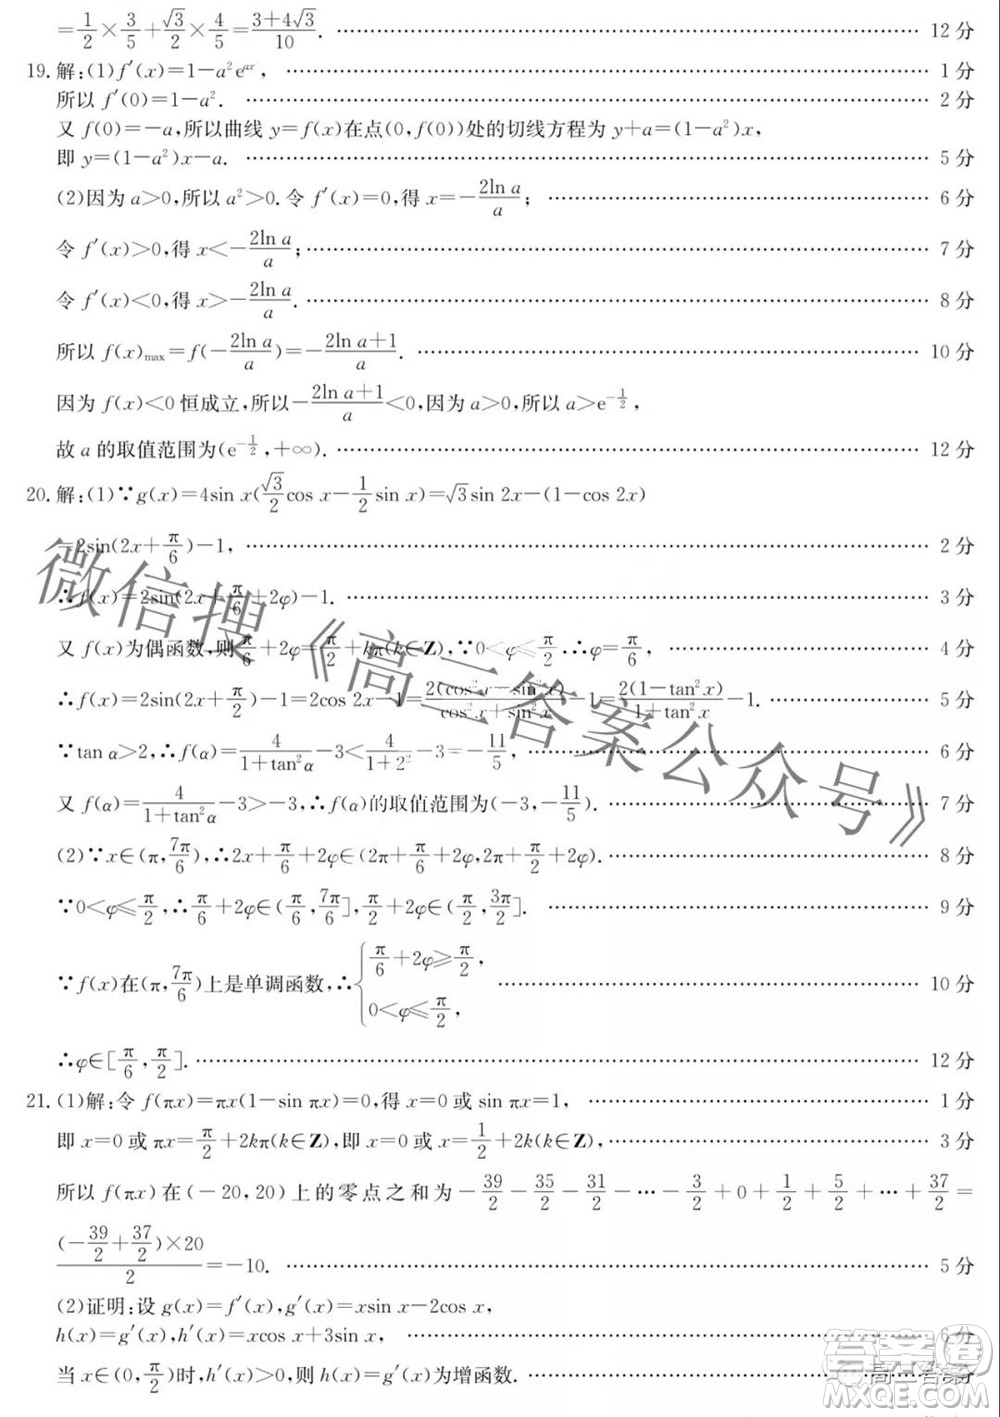 =1/2×3/5+√3/2×4/5=(3+4√3)/10. ………… 12 分
19. 解:(1)f′(x)=1−a²e^{ax}, ………… 1 分
所以 f′(0)=1−a². ………… 2 分
又 f(0)=−a,所以曲线 y=f(x)在点(0,f(0))处的切线方程为 y+a=(1−a²)x,
即 y=(1−a²)x−a. ………… 5 分
(2)因为 a>0,所以 a²>0.令 f′(x)=0,得 x=−2ln a/a; ………… 6 分
令 f′(x)>0,得 x<−2ln a/a; ………… 7 分
令 f′(x)<0,得 x>−2ln a/a. ………… 8 分
所以 f(x)max=f(−2ln a/a)=−(2ln a+1)/a. ………… 10 分
因为 f(x)<0 恒成立,所以−(2ln a+1)/a<0,因为 a>0,所以 a>e^{−1/2},
故 a 的取值范围为(e^{−1/2},+∞). ………… 12 分
20. 解:(1)∵g(x)=4sin x(√3/2 cos x−1/2 sin x)=√3sin 2x−(1−cos 2x)
=2sin(2x+π/6)−1, ………… 2 分
∴f(x)=2sin(2x+π/6+2φ)−1. ………… 3 分
又 f(x)为偶函数,则π/6+2φ=π/2+kπ(k∈Z),∵0<φ≤π/2,∴φ=π/6. ………… 4 分
∴f(x)=2sin(2x+π/2)−1=2cos 2x−1=2(cos²x−sin²x)/(cos²x+sin²x)−1=2(1−tan²x)/(1+tan²x)−1. ………… 5 分
∵tan α>2,∴f(α)=4/(1+tan²α)−3<4/(1+2²)−3=−11/5, ………… 6 分
又 f(α)=4/(1+tan²α)−3>−3,∴f(α)的取值范围为(−3,−11/5). ………… 7 分
(2)∵x∈(π,7π/6),∴2x+π/6+2φ∈(2π+π/6+2φ,2π+π/2+2φ). ………… 8 分
∵0<φ≤π/2,∴π/6+2φ∈(π/6,7π/6],π/2+2φ∈(π/2,3π/2]. ………… 9 分
∵f(x)在(π,7π/6)上是单调函数,∴{π/6+2φ≥π/2, 0<φ≤π/2, ………… 10 分
∴φ∈[π/6,π/2]. ………… 12 分
21. (1)解:令 f(πx)=πx(1−sin πx)=0,得 x=0 或 sin πx=1, ………… 1 分
即 x=0 或 πx=π/2+2kπ(k∈Z),即 x=0 或 x=1/2+2k(k∈Z), ………… 3 分
所以 f(πx)在(−20,20)上的零点之和为−39/2−35/2−31/2−…−3/2+0+1/2+5/2+…+37/2=
(−39/2+37/2)×20/2=−10. ………… 5 分
(2)证明:设 g(x)=f′(x),g′(x)=xsin x−2cos x,
h(x)=g′(x),h′(x)=xcos x+3sin x, ………… 6 分
当 x∈(0,π/2)时,h′(x)>0,则 h(x)=g′(x)为增函数. …………
微信搜《高三答案公众号》
答案圈
MXQE.COM